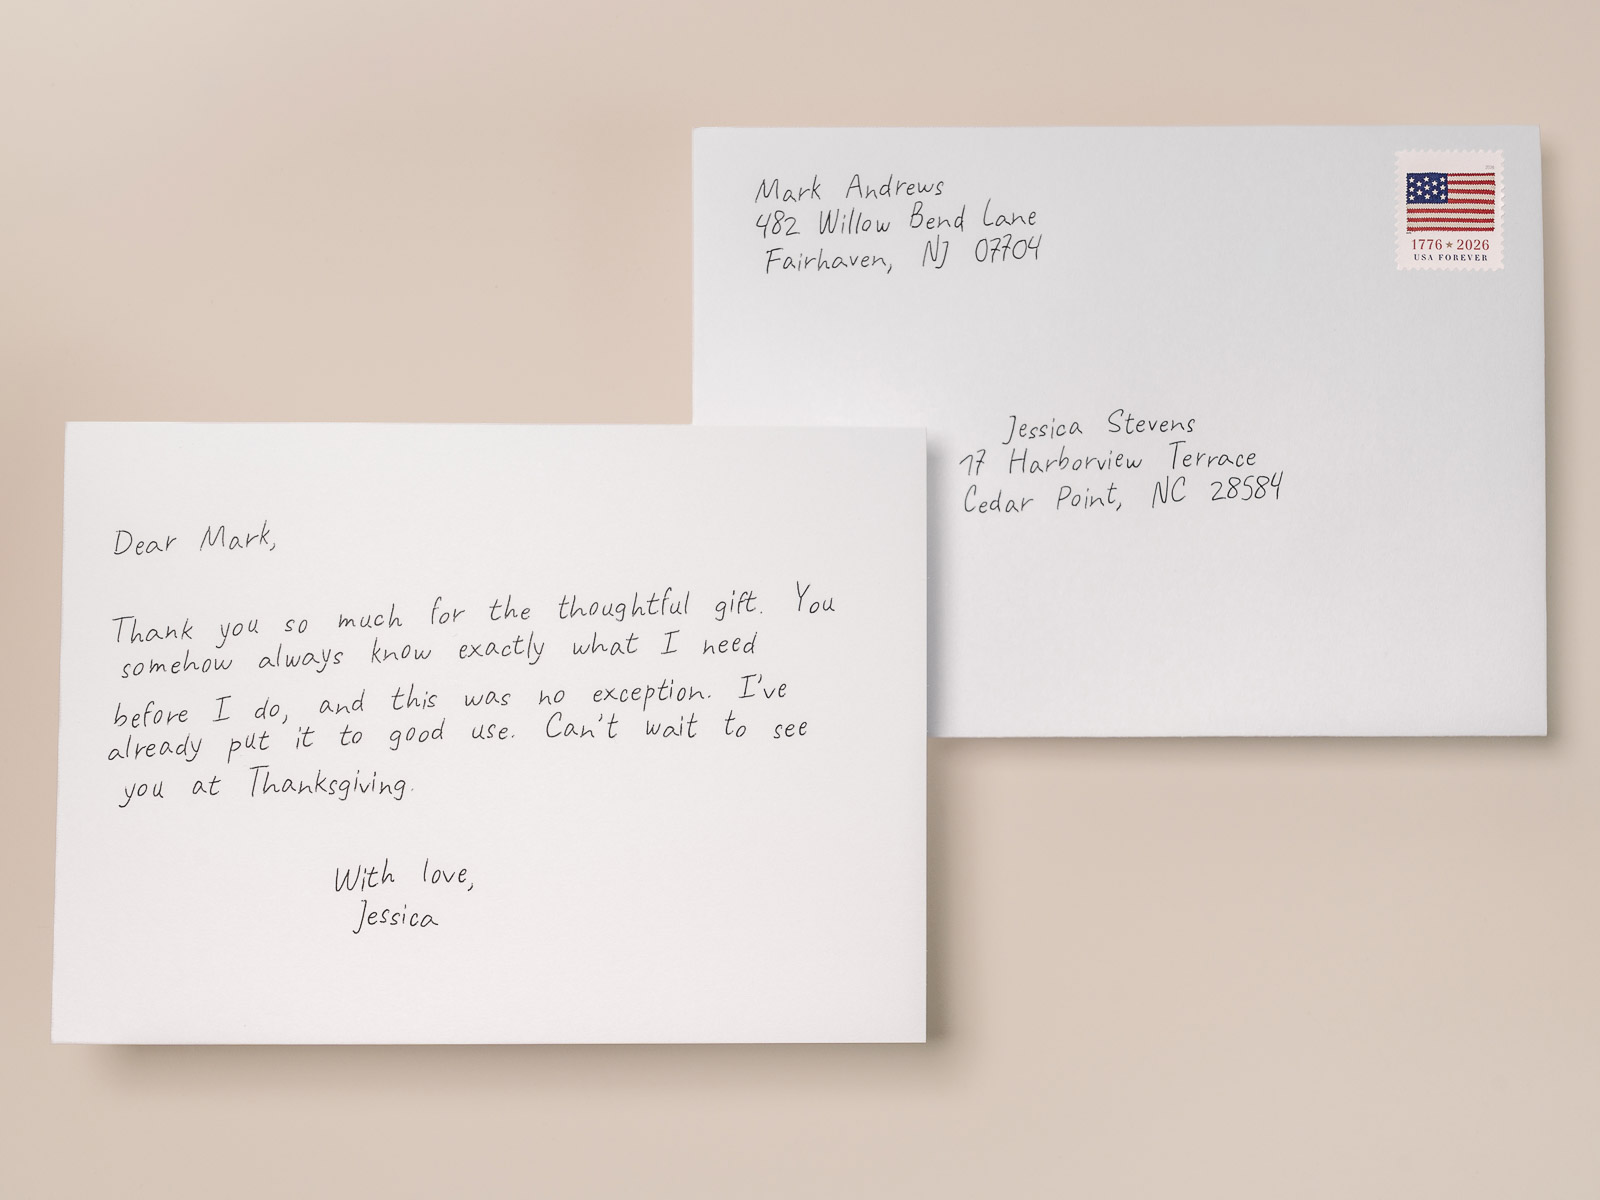 Mark Andrews
482 Willow Bend Lane
Fairhaven, NJ 07704
1776 ★ 2026
USA FOREVER
Jessica Stevens
17 Harborview Terrace
Cedar Point, NC 28584
Dear Mark,
Thank you so much for the thoughtful gift. You
somehow always know exactly what I need
before I do, and this was no exception. I've
already put it to good use. Can't wait to see
you at Thanksgiving.
With love,
Jessica